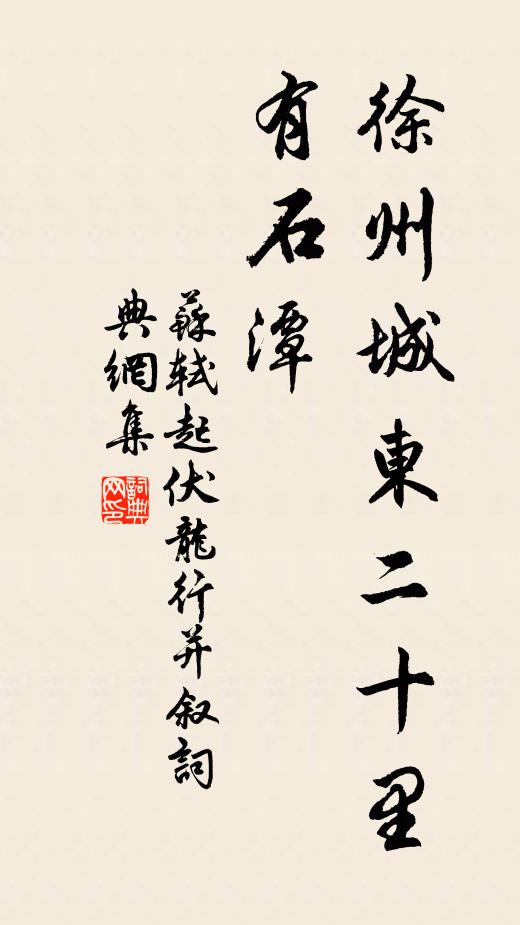 徐州城東二十里
有石潭
蘇軾起伏龍行并叙詞
典網集
詞典網印